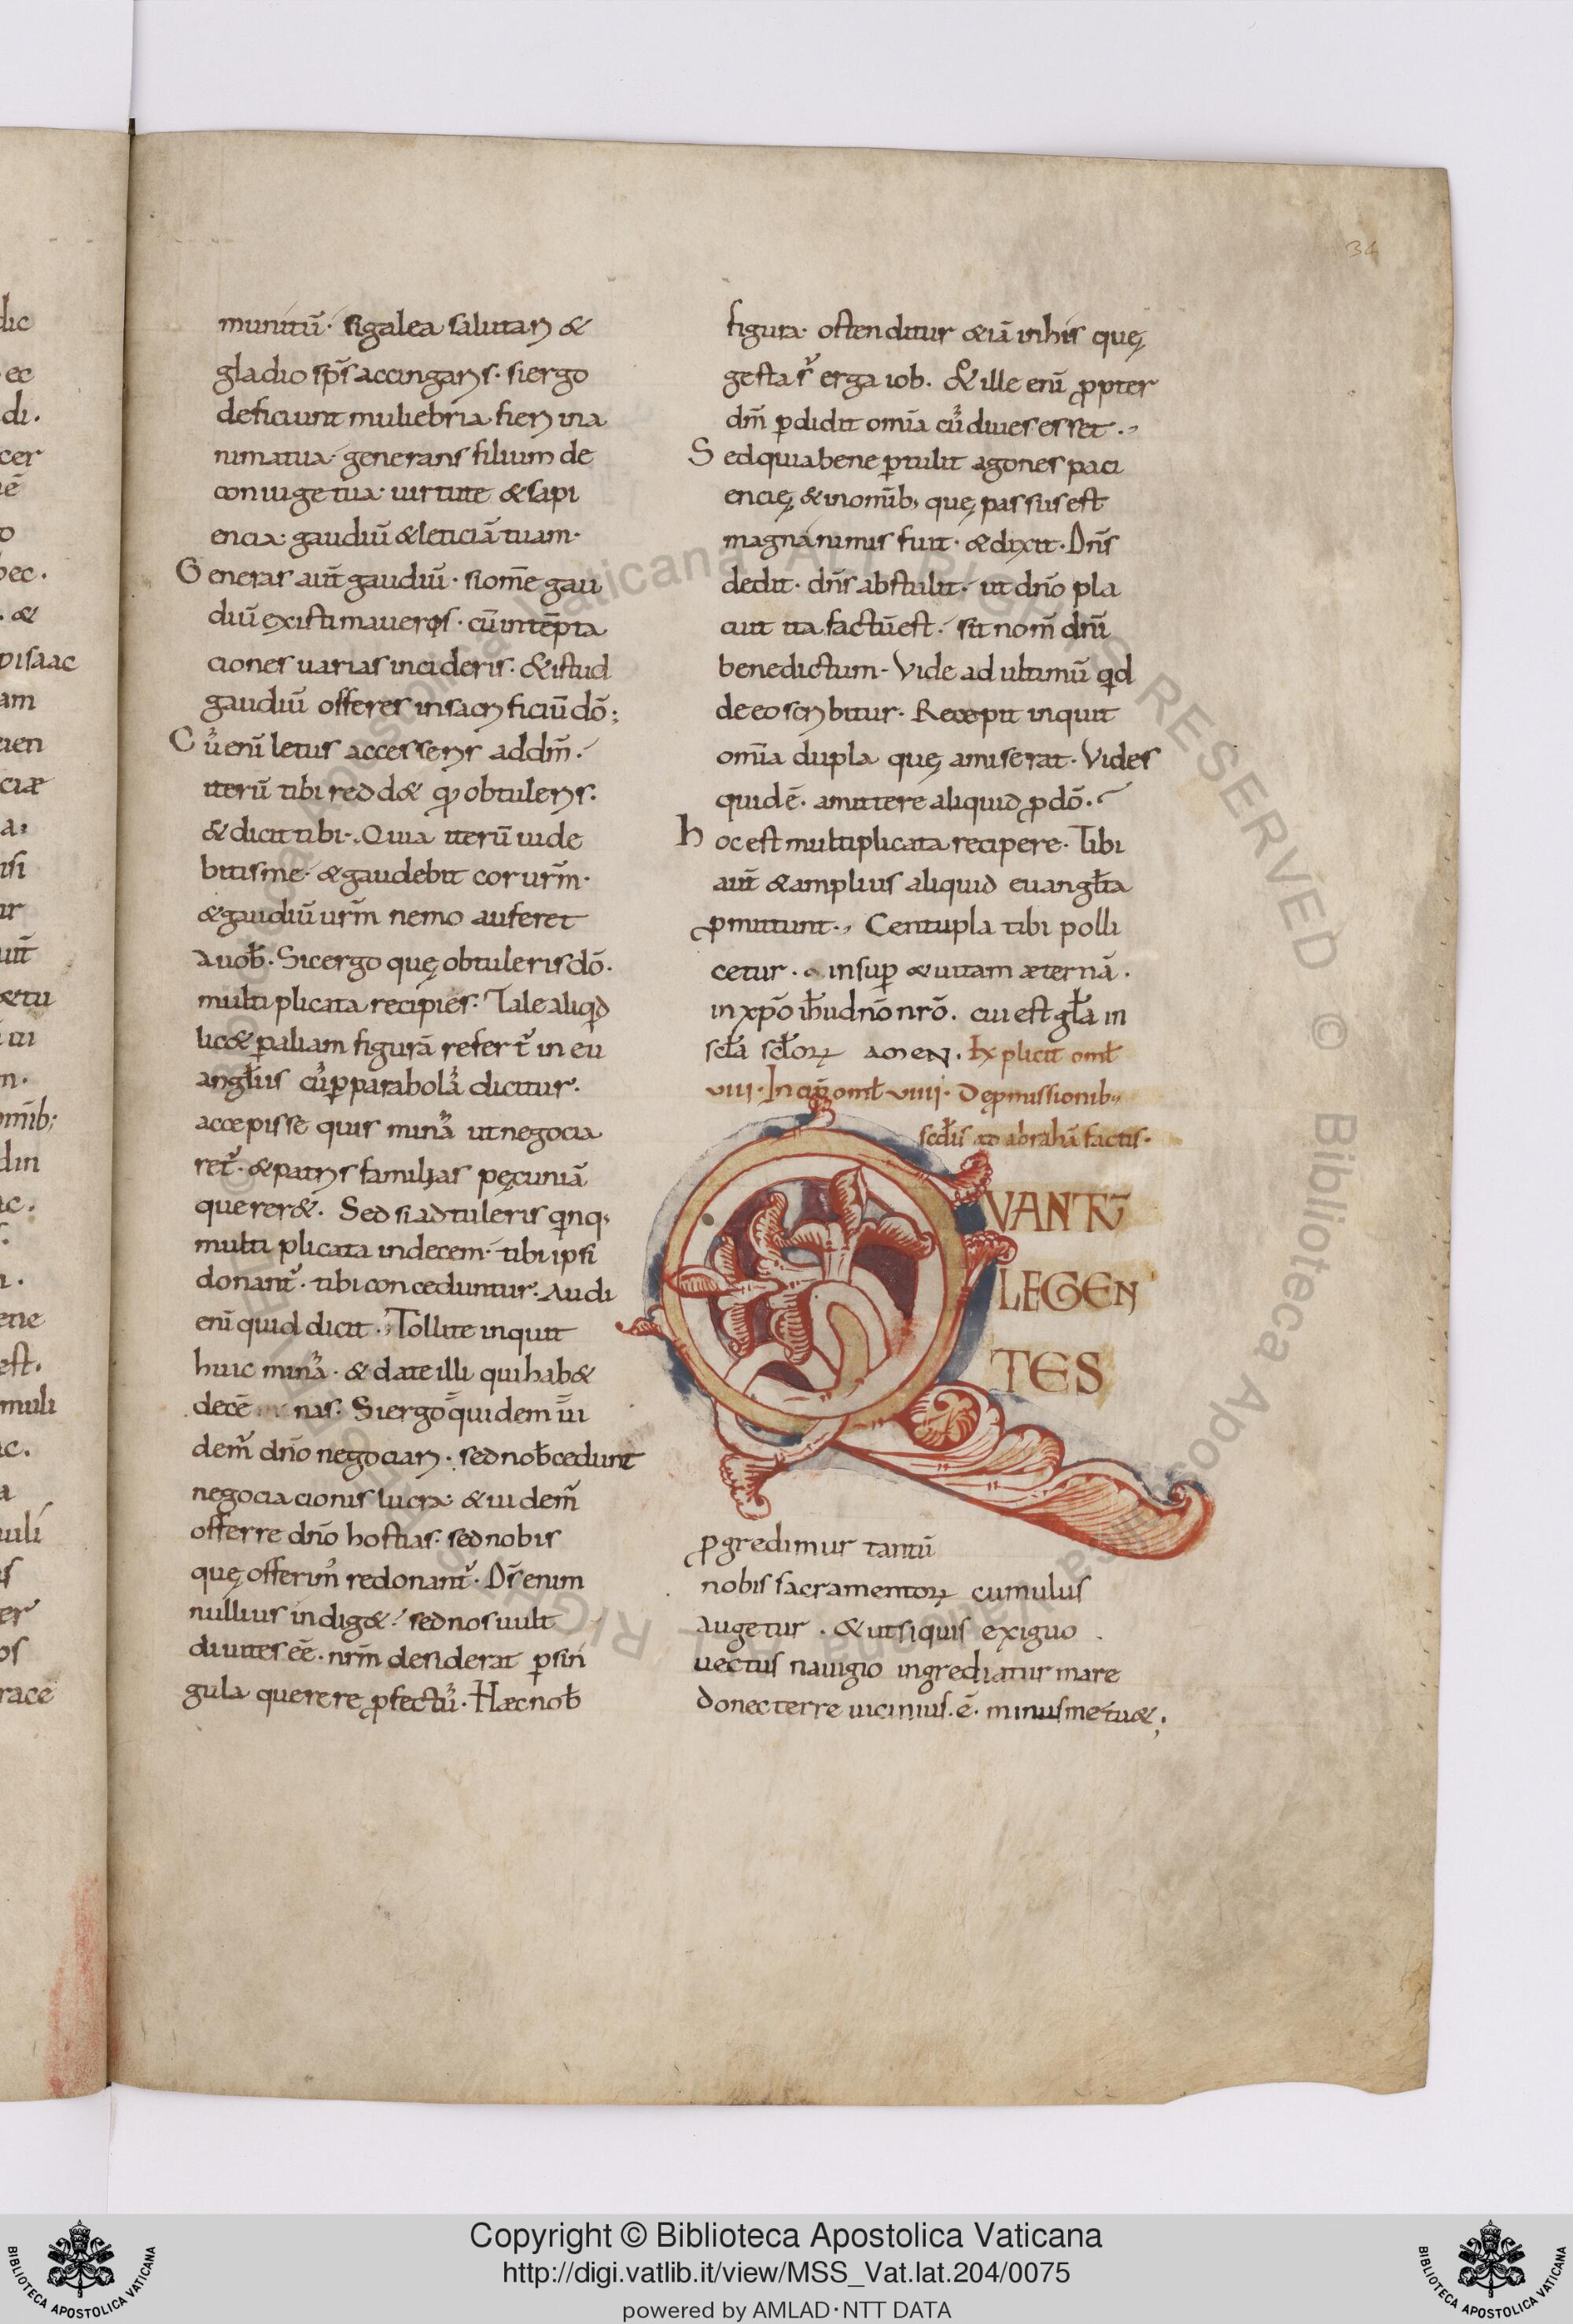 34
munitū· si galea salutari &
gladio sp̄s accingaris· si ergo
deficiunt muliebria fieri in a
nima tua· generans filium de
coniuge tua· uirtute & sapi
encia· gaudiū & leticiā tuam·
Generas aut̄ gaudiū· si om̄e gau
diū existimaueris· cū in tēpta
ciones uarias incideris· & istud
gaudiū offeres in sacrificiū dō;
Cū eni letus accesseris ad dm̄·
iterū tibi redd& qđ obtuleris·
& dicit tibi· Quia iterū uide
bitis me· & gaudebit cor urm̄·
& gaudiū urm̄ nemo auferet
a uob̄· Sic ergo quę obtuleris dō·
multiplicata recipies· Tale aliqd
lic& p aliam figurā refert᷒ in eu
anglīis cū p parabolā dicitur·
accepisse quis minā ut negocia
ret᷒· & patris familias pęcuniā
querer&· Sed si adtuleris qinq;
multiplicata in decem· tibi ipsi
donant᷒· tibi conceduntur· Audi
enī quid dicit· Tollite inquit
huic minā· & date illi qui hab&
decē nas· Si ergo quidem ui
dem̄ dn̄o negociari· sed nob̄ cedunt
negociacionis lucra· & uidem̄
offerre dn̄o hostias· sed nobis
quę offerim᷒ redonant᷒· Ds̄ enim
nullius indig&· sed nos uult
diuites eē· nrm̄ desiderat p sin
gula querere pfectū· Hæc nob̄
figura· ostenditur &iā in his quę
gesta s᷒ erga iob· & ille enī ppter
dm̄ pdidit omīa cū diues esset·
Sed quia bene ptulit agones paci
encię, & in omīb; quę passus est
magnanimus fuit· & dixit· Dn̄s
dedit· dn̄s abstulit· ut dn̄o pla
cuit ita factū est· sit nom̄ dn̄i
benedictum· Vide ad ultimū qd
de eo scribitur· Recepit inquit
omīa dupla quę amiserat· Vides
quid ē· amittere aliquid p dō·
hoc est multiplicata recipere· Tibi
aut̄ & amplius aliquid euanglīa
pmittunt· Centupla tibi polli
cetur· insup & uitam æternā·
in xpō ih̄u dn̄o nrō· cui est glā in
sclā sclōꝝ AMEN· Explicit oml̄
VIII· Incip̄ oml̄ VIIII· De pmissionib;
scdis ad abrahā factis·
QVANTŪ
LEGEN
TES
pgredimur tantū
nobis sacramentoꝝ cumulus
augetur· & ut si quis exiguo
uectus nauigio ingrediatur mare
donec terre uicinius· ē· minus metu&·
Copyright © Biblioteca Apostolica Vaticana
http://digi.vatlib.it/view/MSS_Vat.lat.204/0075
powered by AMLAD·NTT DATA